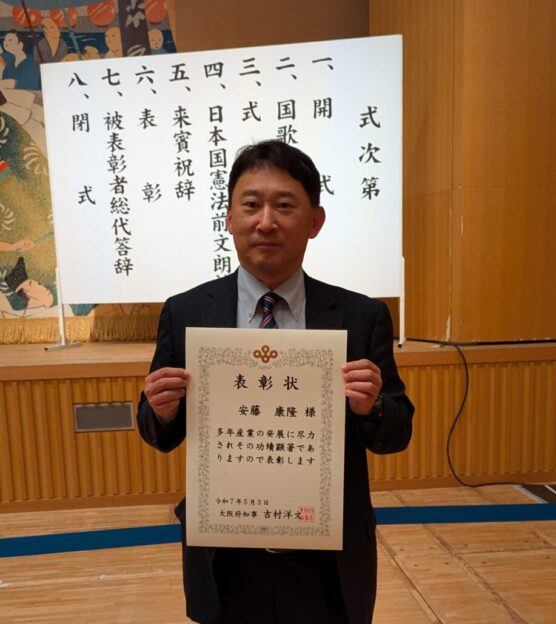 式次第
一、開 式
二、国歌
三、式
四、日本国憲法前文朗
五、来賓祝辞
六、表 彰
七、被表彰者総代答辞
八、閉 式
表彰状
安藤 康隆 様
多年産業の発展に尽力
されその功績顕著であ
りますので表彰します
令和7年5月3日
大阪府知事 吉村洋文